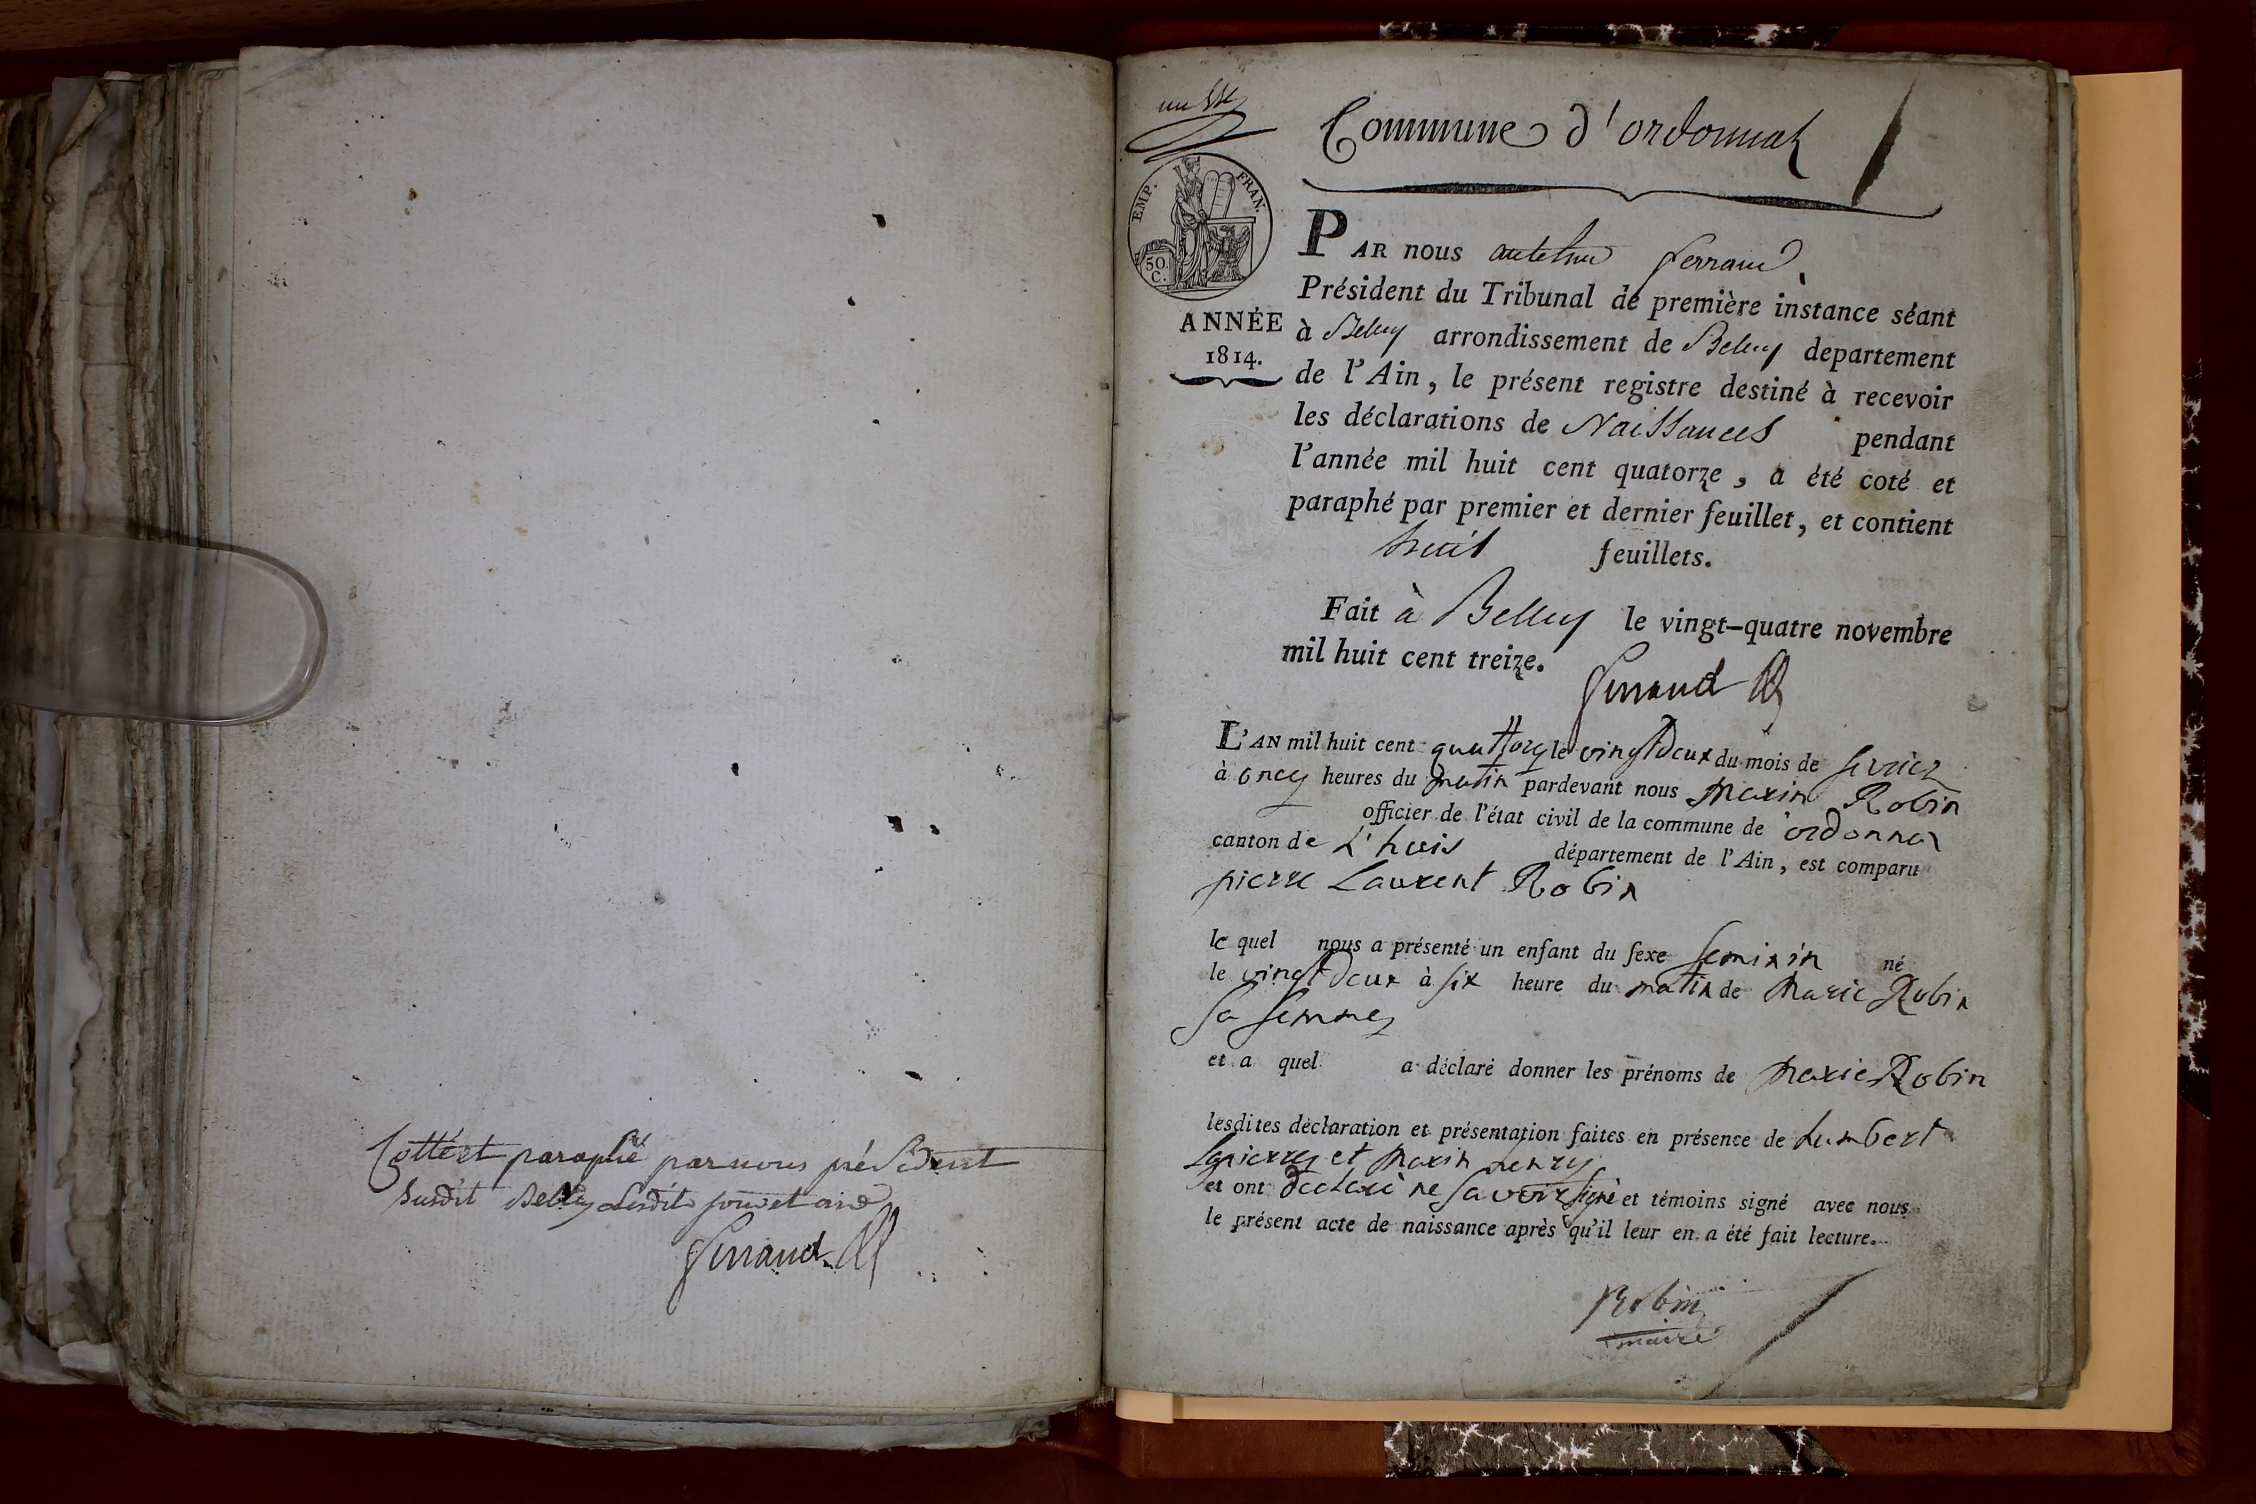 Cotté et paraphé par nous président
susdit Belley lesdits jour et an
Ferrand
Commune d'ordonnaz
EMP. FRAN.
50. C.
ANNÉE
1814.
PAR nous antelme ferrand
Président du Tribunal de première instance séant
à Belley arrondissement de Belley departement
de l'Ain, le présent registre destiné à recevoir
les déclarations de Naissances pendant
l'année mil huit cent quatorze, a été coté et
paraphé par premier et dernier feuillet, et contient
huit feuillets.
Fait à Belley le vingt-quatre novembre
mil huit cent treize.
Ferrand
L'AN mil huit cent quattorze le vingt deux du mois de fevrier
à onze heures du matin pardevant nous marin Robin
officier de l'état civil de la commune de ordonnaz
canton de L'huis département de l'Ain, est comparu
pierre Laurent Robin
le quel nous a présenté un enfant du sexe feminin né
le vingt deux à six heure du matin de marie Robin
sa femme
et a quel a déclaré donner les prénoms de marie Robin
lesdites déclaration et présentation faites en présence de humbert
Lapierre et marin henry
et ont declaré ne savoir signé et témoins signé avec nous
le présent acte de naissance après qu'il leur en a été fait lecture.
Robin
maire